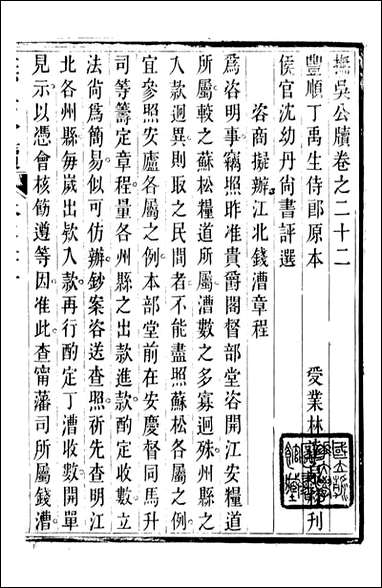 撫吳公牘卷之二十二
豐順丁禹生侍郎原本
侯官沈幼丹尚書評選
受業林
刊
咨商擬辦江北錢漕章程
爲咨明事竊照昨准貴爵閣督部堂咨開江安糧道
所屬較之蘇松糧道所屬漕數之多寡迥殊州縣之
入款迥異則取之民間者不能盡照蘇松各屬之例
宜參照安廬各屬之例本部堂前在安慶督同馬升
司等籌定章程量各州縣之出款進款酌定收數立
法尚爲簡易似可仿辦鈔案咨送查照祈先查明江
北各州縣每歲出款入款再行酌定丁漕收數開單
見示以憑會核飭遵等因准此查甯藩司所屬錢漕